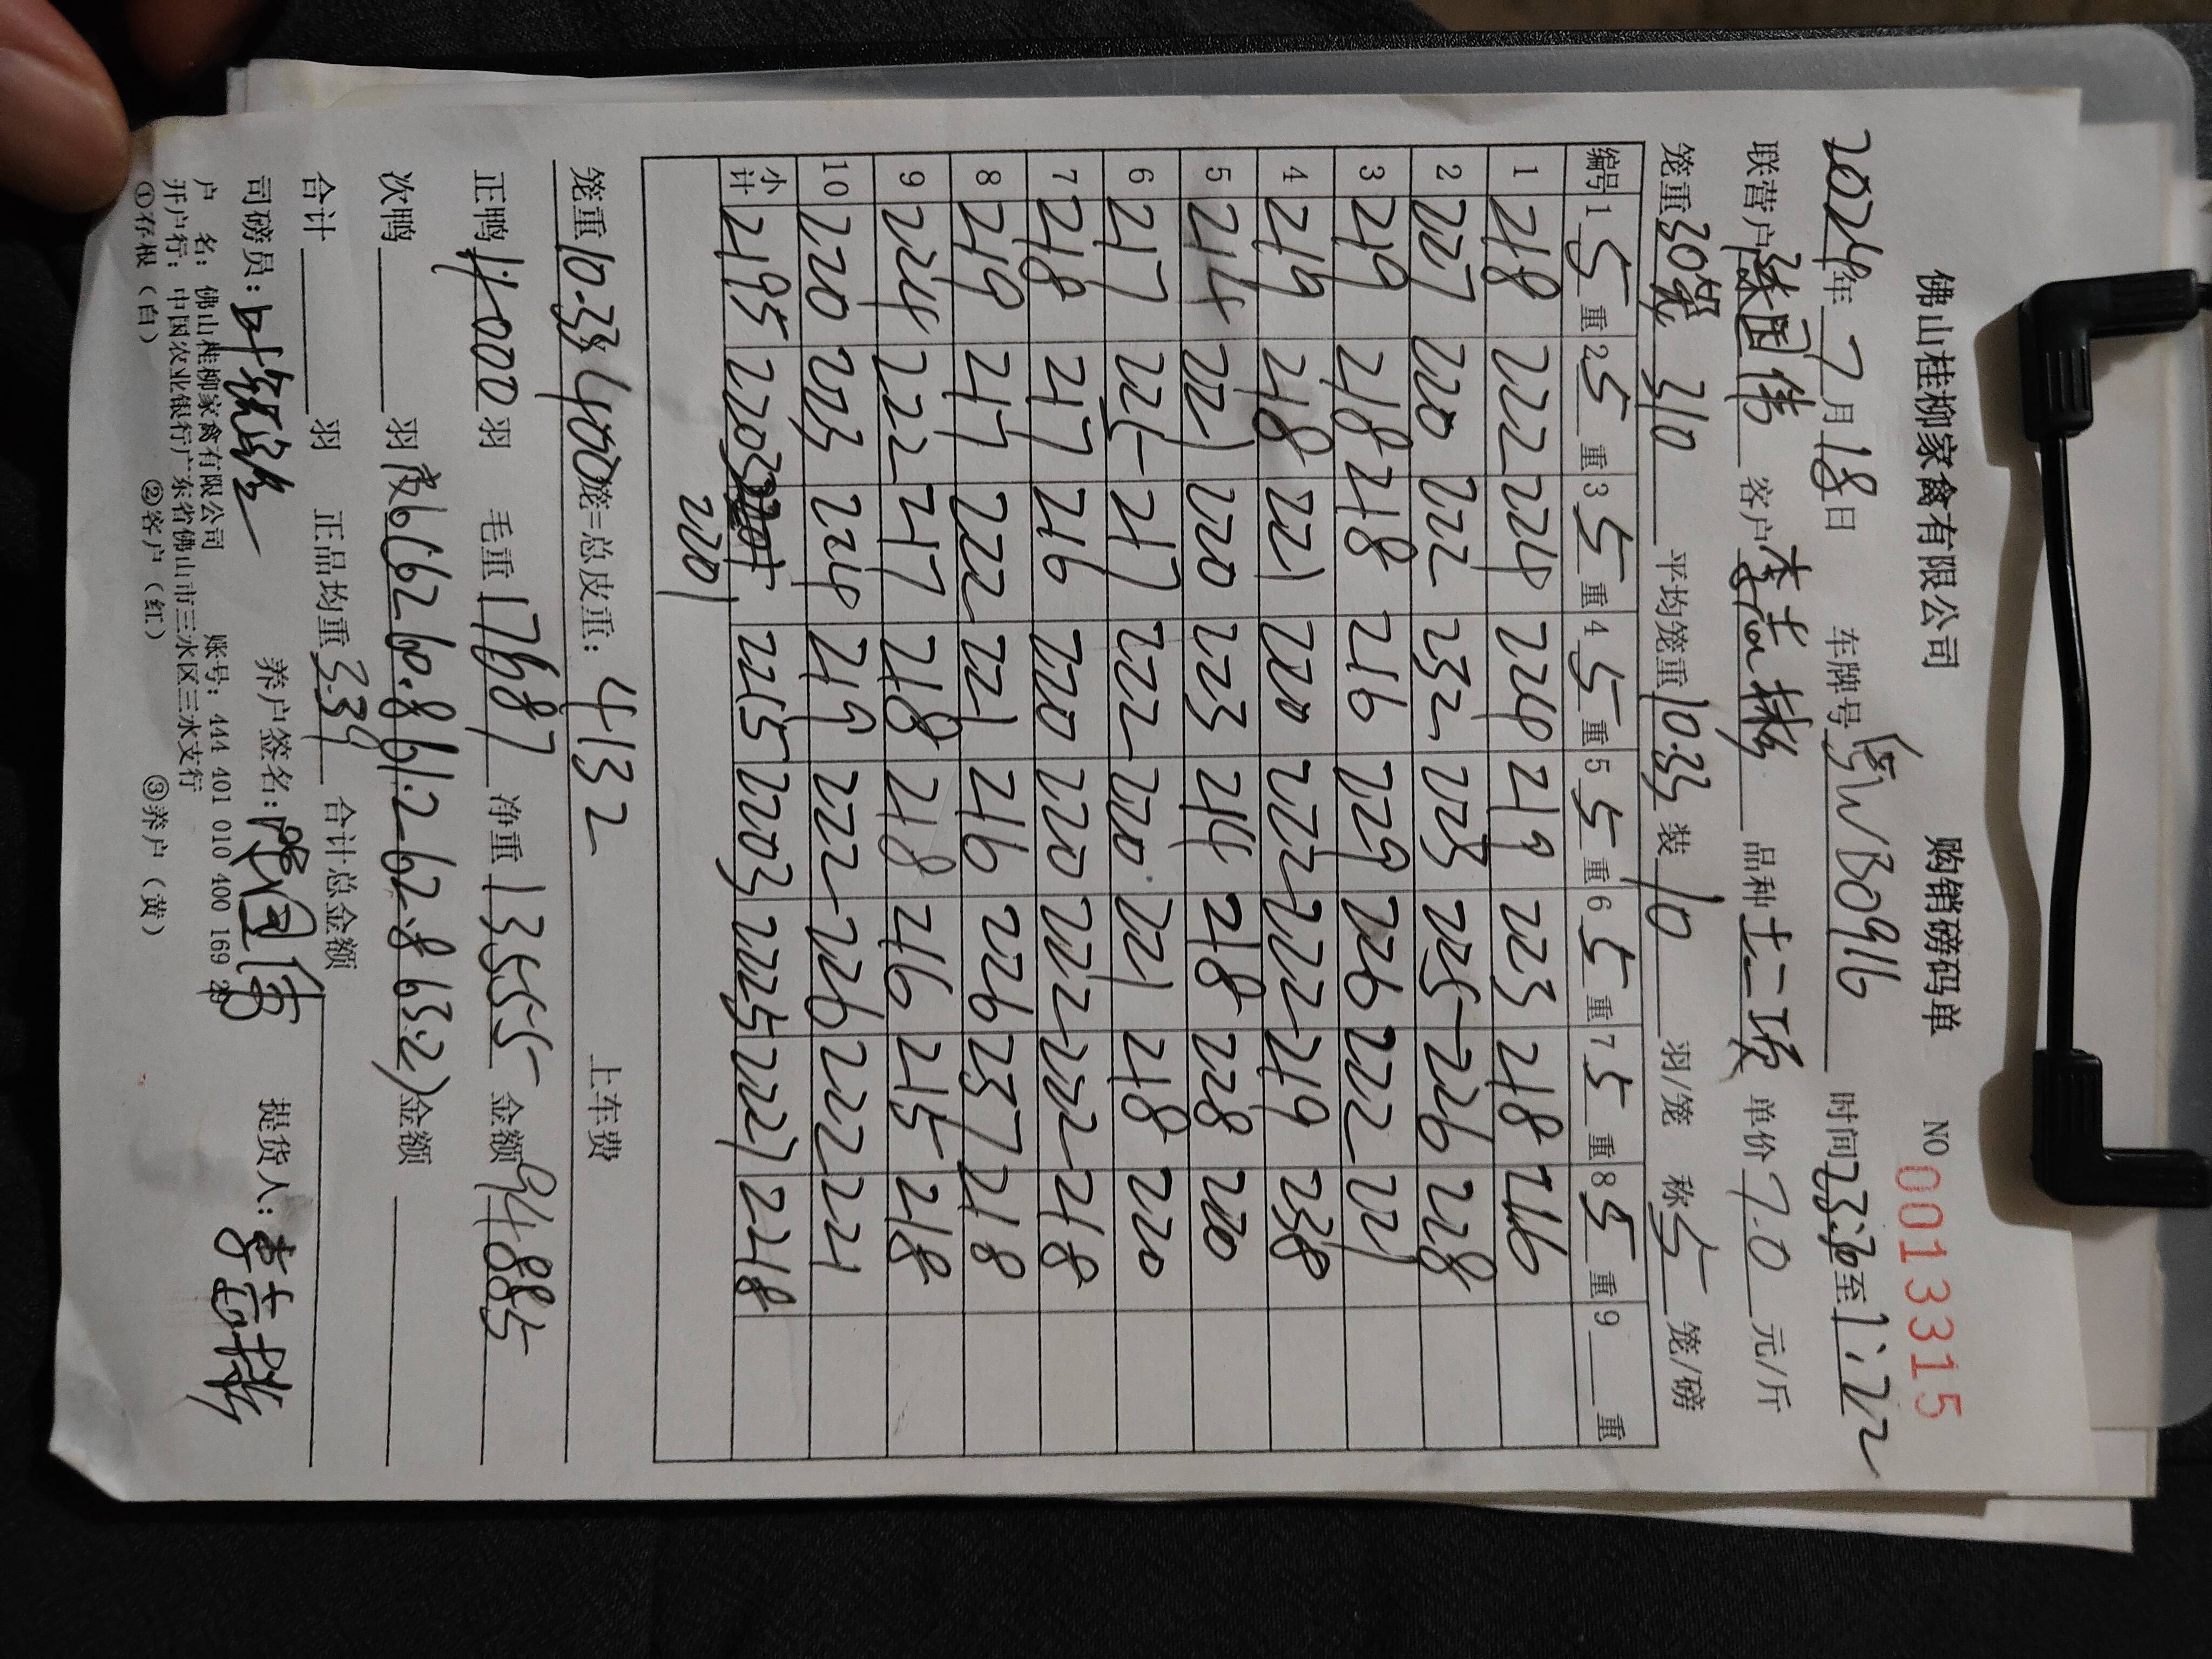 佛山桂柳家禽有限公司 购销磅码单 NO 0013315
2024年 7 月 18 日 车牌号 粤WB0916 时间 23:20 至 1:22
联营户 陈国伟 客户 李志彬 品种 土二项 单价 7.0 元/斤
笼重 30笼 310 平均笼重 10.33 装 10 羽/笼 称 5 笼/磅
编号 1 5 重 2 5 重 3 5 重 4 5 重 5 5 重 6 5 重 7 5 重 8 5 重 9 重
1 218 222 224 224 219 223 218 216
2 227 220 222 232 223 225 226 228
3 219 218 218 216 229 226 222 221
4 219 218 221 220 222 222 219 238
5 214 221 220 223 214 218 228 220
6 217 225 217 222 220 221 218 220
7 218 217 216 220 220 222 222 218
8 219 217 222 221 216 226 237 218
9 224 222 217 218 218 216 215 218
10 220 223 224 219 222 226 222 221
小计 2195 2203 2215 2203 2225 2227 2218
2201
笼重 10.33 400 笼=总皮重: 4132 上车费
正鸭 4000 羽 毛重 17687 净重 13555 金额 94885
次鸭 羽 皮(62 60.8 61.2 62.8 63.2) 金额
合计 羽 正品均重 3.39 合计总金额
司磅员: 养户签名: 陈国伟 提货人: 李志彬
户 名: 佛山桂柳家禽有限公司 账号: 444 401 010 400 169 29
开户行: 中国农业银行广东省佛山市三水区三水支行
①存根(白) ②客户(红) ③养户(黄)